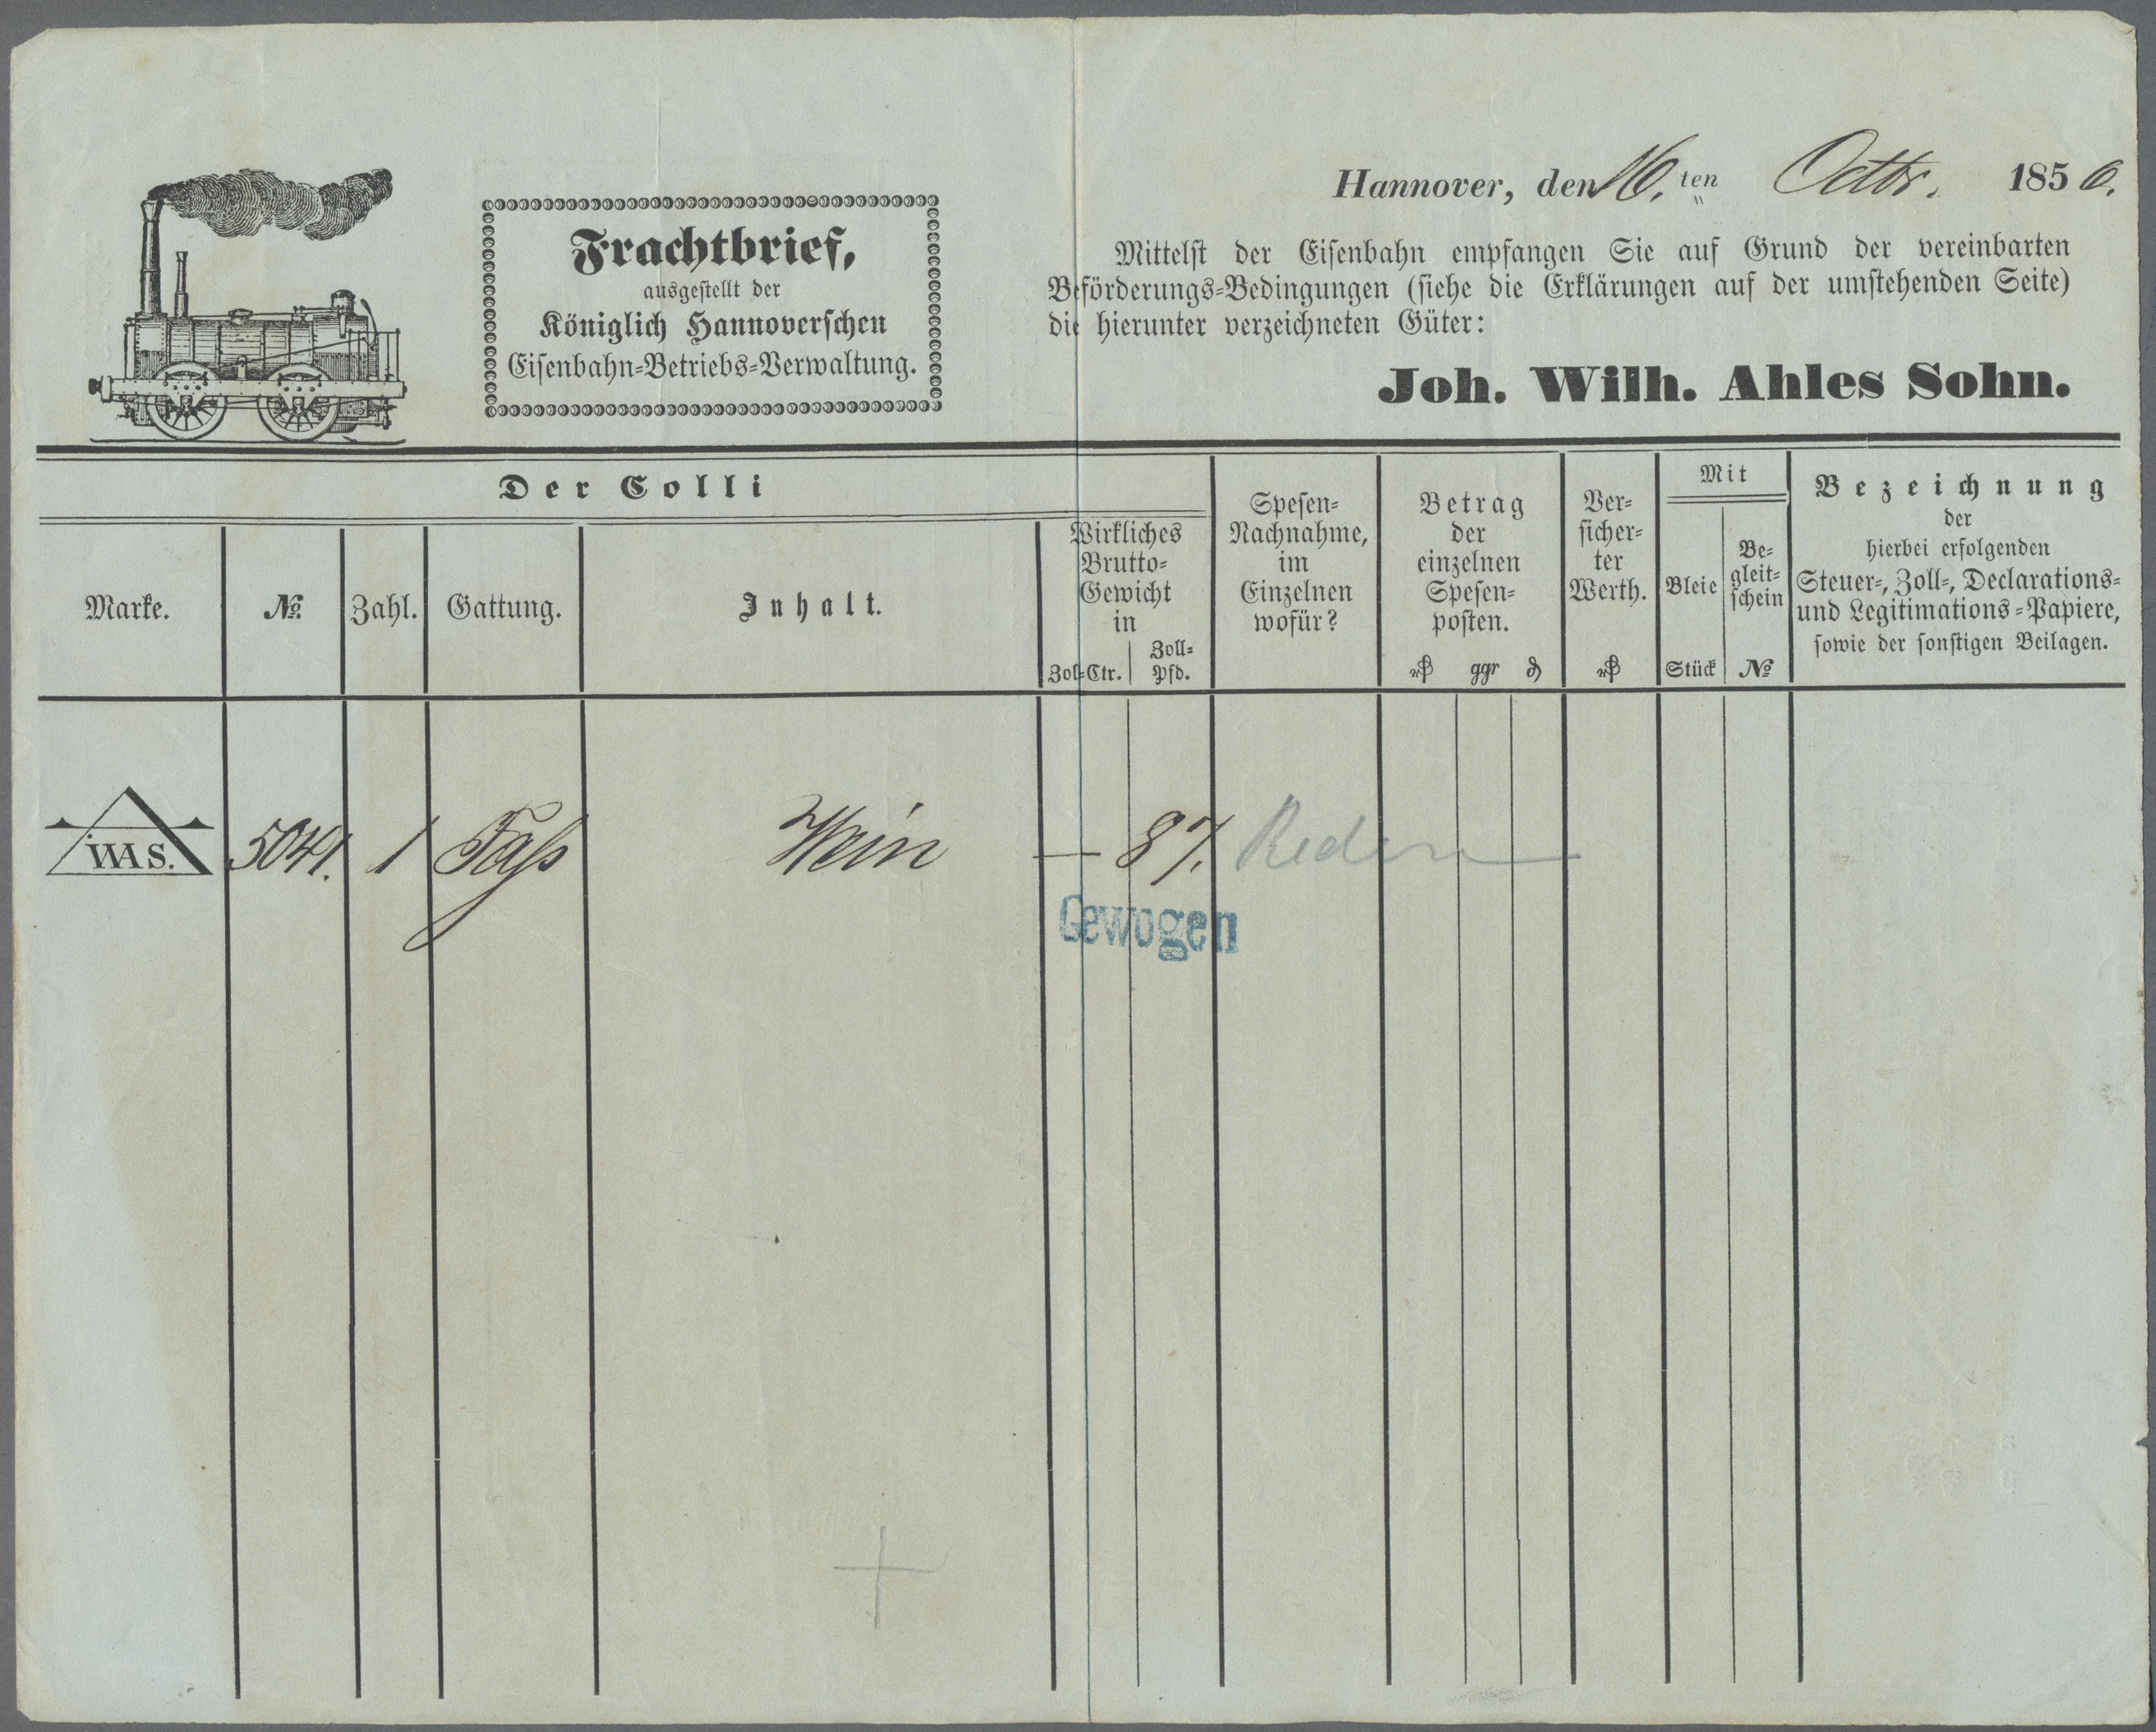 Hannover, den 16. ten Octbr. 1856.
Frachtbrief,
ausgestellt der
Königlich Hannoverschen
Eisenbahn-Betriebs-Verwaltung.
Mittelst der Eisenbahn empfangen Sie auf Grund der vereinbarten
Beförderungs-Bedingungen (siehe die Erklärungen auf der umstehenden Seite)
die hierunter verzeichneten Güter:
Joh. Wilh. Ahles Sohn.
Der Colli
Marke.
No.
Zahl.
Gattung.
Inhalt.
Wirkliches
Brutto-
Gewicht
in
Zol-Ctr.
Zoll-
Pfd.
Spesen-
Nachnahme,
im
Einzelnen
wofür?
Betrag
der
einzelnen
Spesen-
posten.
ggr
Ver-
sicher-
ter
Werth.
Mit
Bleie
Stück
Be-
gleit-
schein
No
Bezeichnung
der
hierbei erfolgenden
Steuer-, Zoll-, Declarations-
und Legitimations-Papiere,
sowie der sonstigen Beilagen.
WAS. 5041. 1 Fass Wein — 87. Reden
Gewogen